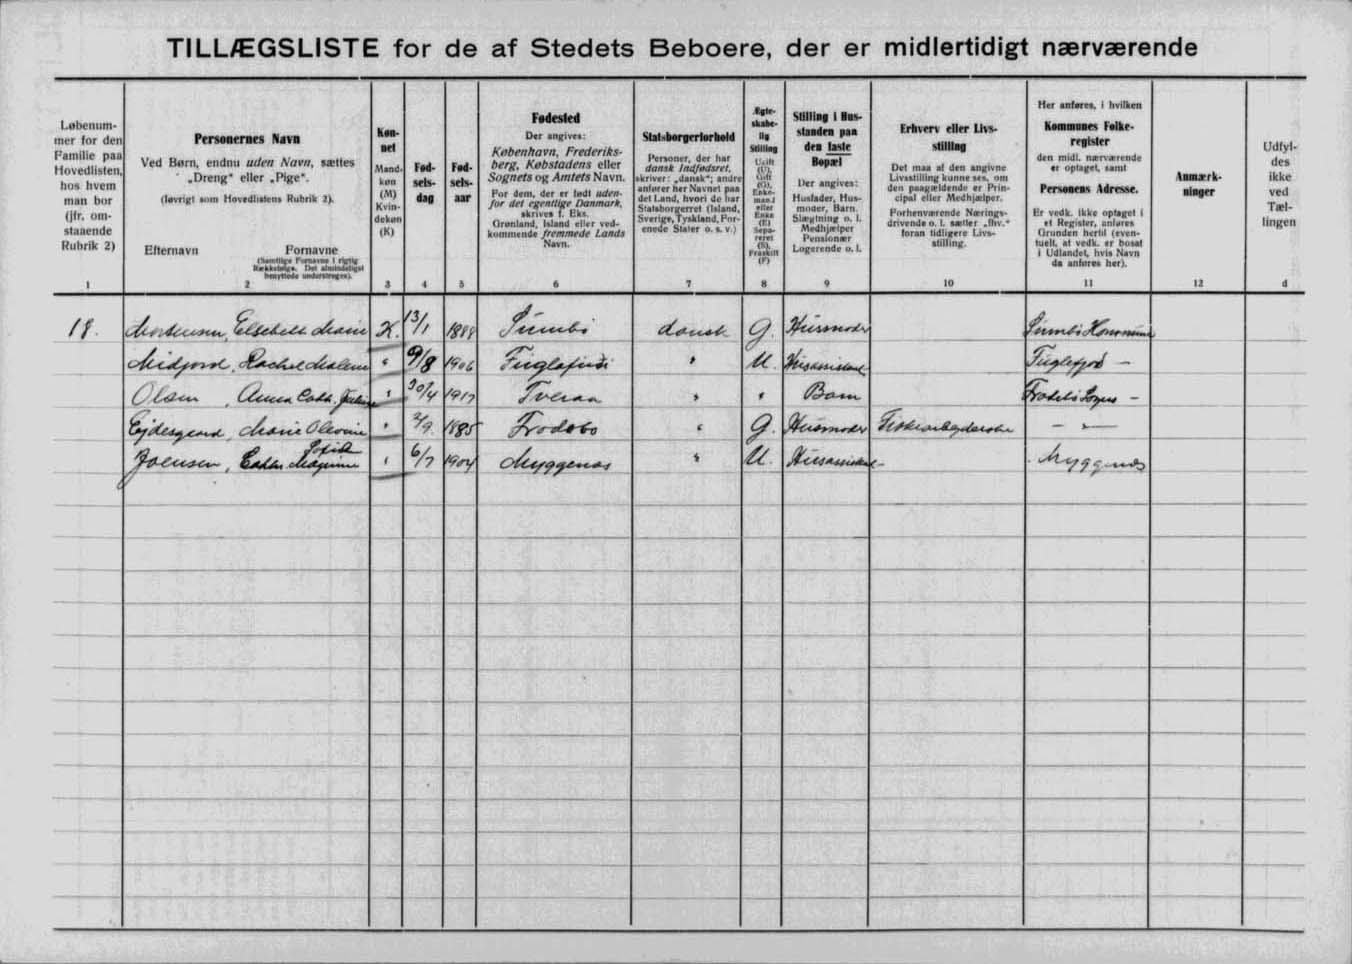 TILLÆGSLISTE for de af Stedets Beboere, der er midlertidigt nærværende
Løbenum-
mer for den
Familie paa
Hovedlisten,
hos hvem
man bor
(jfr. om-
staaende
Rubrik 2)
1
Personernes Navn
Ved Børn, endnu uden Navn, sættes
„Dreng" eller „Pige".
(Iøvrigt som Hovedlistens Rubrik 2).
Efternavn
Fornavne
(Samtlige Fornavne i rigtig
Rækkefølge. Det almindeligst
benyttede understreges).
2
Køn-
net
Mand-
køn
(M)
Kvin-
dekøn
(K)
3
Fød-
sels-
dag
4
Fød-
sels-
aar
5
Fødested
Der angives:
København, Frederiks-
berg, Købstadens eller
Sognets og Amtets Navn.
For dem, der er født uden-
for det egentlige Danmark,
skrives f. Eks.
Grønland, Island eller ved-
kommende fremmede Lands
Navn.
6
Statsborgerforhold
Personer, der har
dansk Indfødsret,
skriver: „dansk"; andre
anfører her Navnet paa
det Land, hvori de har
Statsborgerret (Island,
Sverige, Tyskland, For-
enede Stater o. s. v.)
7
Ægte-
skabe-
lig
Stilling
Ugift
(U),
Gift
(G),
Enke-
mand
eller
Enke
(E)
Sepa-
reret
(S),
Fraskilt
(F)
8
Stilling i Hus-
standen paa
den faste
Bopæl
Der angives:
Husfader, Hus-
moder, Barn,
Slægtning o. l.
Medhjælper
Pensionær
Logerende o. l.
9
Erhverv eller Livs-
stilling
Det maa af den angivne
Livsstilling kunne ses, om
den paagældende er Prin-
cipal eller Medhjælper.
Forhenværende Nærings-
drivende o. l. sætter „fhv."
foran tidligere Livs-
stilling.
10
Her anføres, i hvilken
Kommunes Folke-
register
den midl. nærværende
er optaget, samt
Personens Adresse.
Er vedk. ikke optaget i
et Register, anføres
Grunden hertil (even-
tuelt, at vedk. er bosat
i Udlandet, hvis Navn
da anføres her).
11
Anmærk-
ninger
12
Udfyl-
des
ikke
ved
Tæl-
lingen
d
18. Mortensen, Elsebeth Marie K. 13/1 1888 Sumbö dansk G. Husmoder Sumbö Kommune
Midjord, Rachel Malene " 9/8 1906 Fuglafirdi " U. Husassistent Fuglefjord —
Olsen, Anna Cath. Juliane " 30/4 1917 Tveraa " " Barn Frodebö Sogns —
Ejdesgaard, Marie Olevine " 2/9 1885 Frodebo " G. Husmoder Fiskearbejderske — " —
Sofie
Joensen, Cathr. Magrine " 6/7 1904 Myggenæs " U. Husassistent — Myggenæs